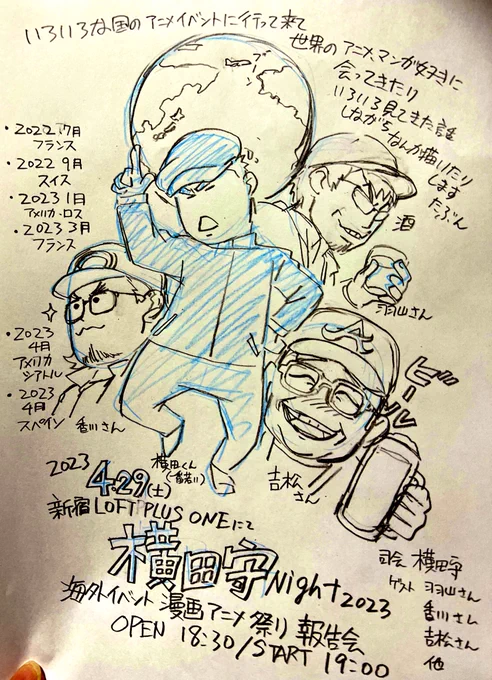 いろいろな国のアニメイベントに行って来て
世界のアニメ、マンガ好きに
会ってきたり
いろいろ見てきた話
しながらなんか描いたり
します
たぶん
・2022 7月
フランス
・2022 9月
スイス
・2023 1日
アメリカ・ロス
・2023 3月
フランス
・2023
4月
アメリカ
シアトル
・2023
4月
スペイン
酒
羽山さん
香川さん
A
ビール
吉松
さん
横田くん
(一番若い)
2023
4.29(土)
新宿LOFT PLUS ONEにて
横田守Night2023
海外イベント 漫画アニメ祭り 報告会
OPEN 18:30/START 19:00
司会 横田守
ゲスト 羽山さん
香川さん
吉松さん
他